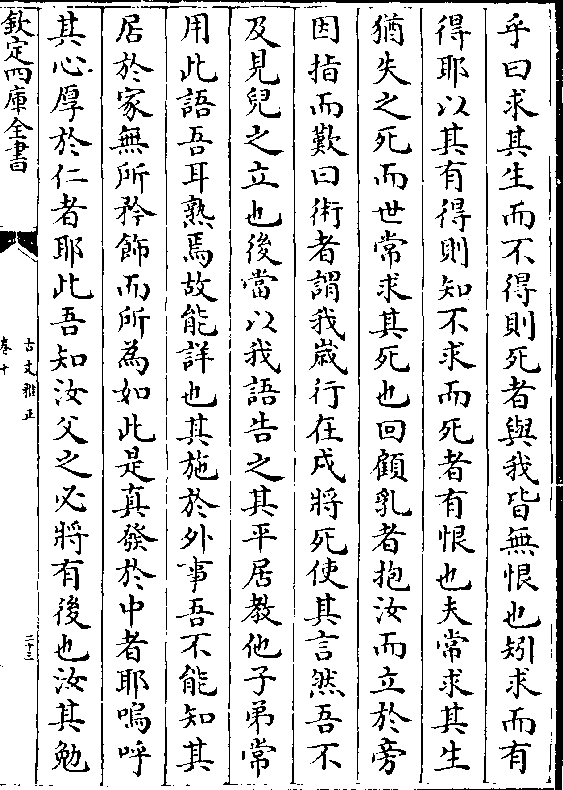 乎曰求其生而不得則死者與我皆無恨也矧求而有
得耶以其有得則知不求而死者有恨也夫常求其生
猶失之死而世常求其死也回顧乳者抱汝而立於旁
因指而歎曰術者謂我嵗行在戌將死使其言然吾不
及見兒之立也後當以我語告之其平居教他子弟常
用此語吾耳熟焉故能詳也其施於外事吾不能知其
居於家無所矜飾而所為如此是真發於中者耶嗚呼
其心厚於仁者耶此吾知汝父之必將有後也汝其勉
欽定四庫全書
古文雅正
卷十
二十三